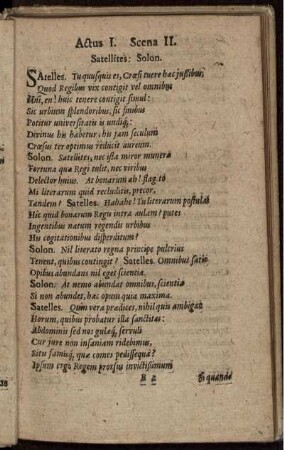 Actus I. Scena II.
Satellites: Solon.
SAtelles. Tu quisquis es, Crœsi tuere hæc jussibus,
Quod Regibus vix contigit vel omnibus
Uni, en! huic tenere contigit simul:
Sic urbium splendoribus, sic finibus
Potitur universitatis is undiq;:
Divinus hic habetur: his jam seculum
Crœsus ter optimus reducit aureum.
Solon. Satellites, nec ista miror munera
Fortuna quæ Regi tulit, nec viribus
Delector hujus. At bonarum ah! flagito
Mi literarum quid recluditis, precor,
Tandem? Satelles. Hahahe! Tu literarum postulas
Hic quid bonarum Regis intra aulam? putes
Ingentibus natum regendis urbibus
His cogitationibus disperditum?
Solon. Nil literato regna principe pulcrius
Tenent, quibus contingit? Satelles. Omnibus satis
Opibus abundans nil eget scientiâ.
Solon. At nemo abundat omnibus, scientiâ
Si non abundet, hæc opem quia maxima.
Satelles. Quin vera prædices, nihil quis ambigat
Horum, quibus probatur illa sanctitas:
Abdominis sed nos gulæq; servuli
Cur jure non insaniam ridebimus,
Situ famisq; quæ comes pedissequa?
Ipsum ergo Regem prorsus invictissimum
B 2 Si quando
38